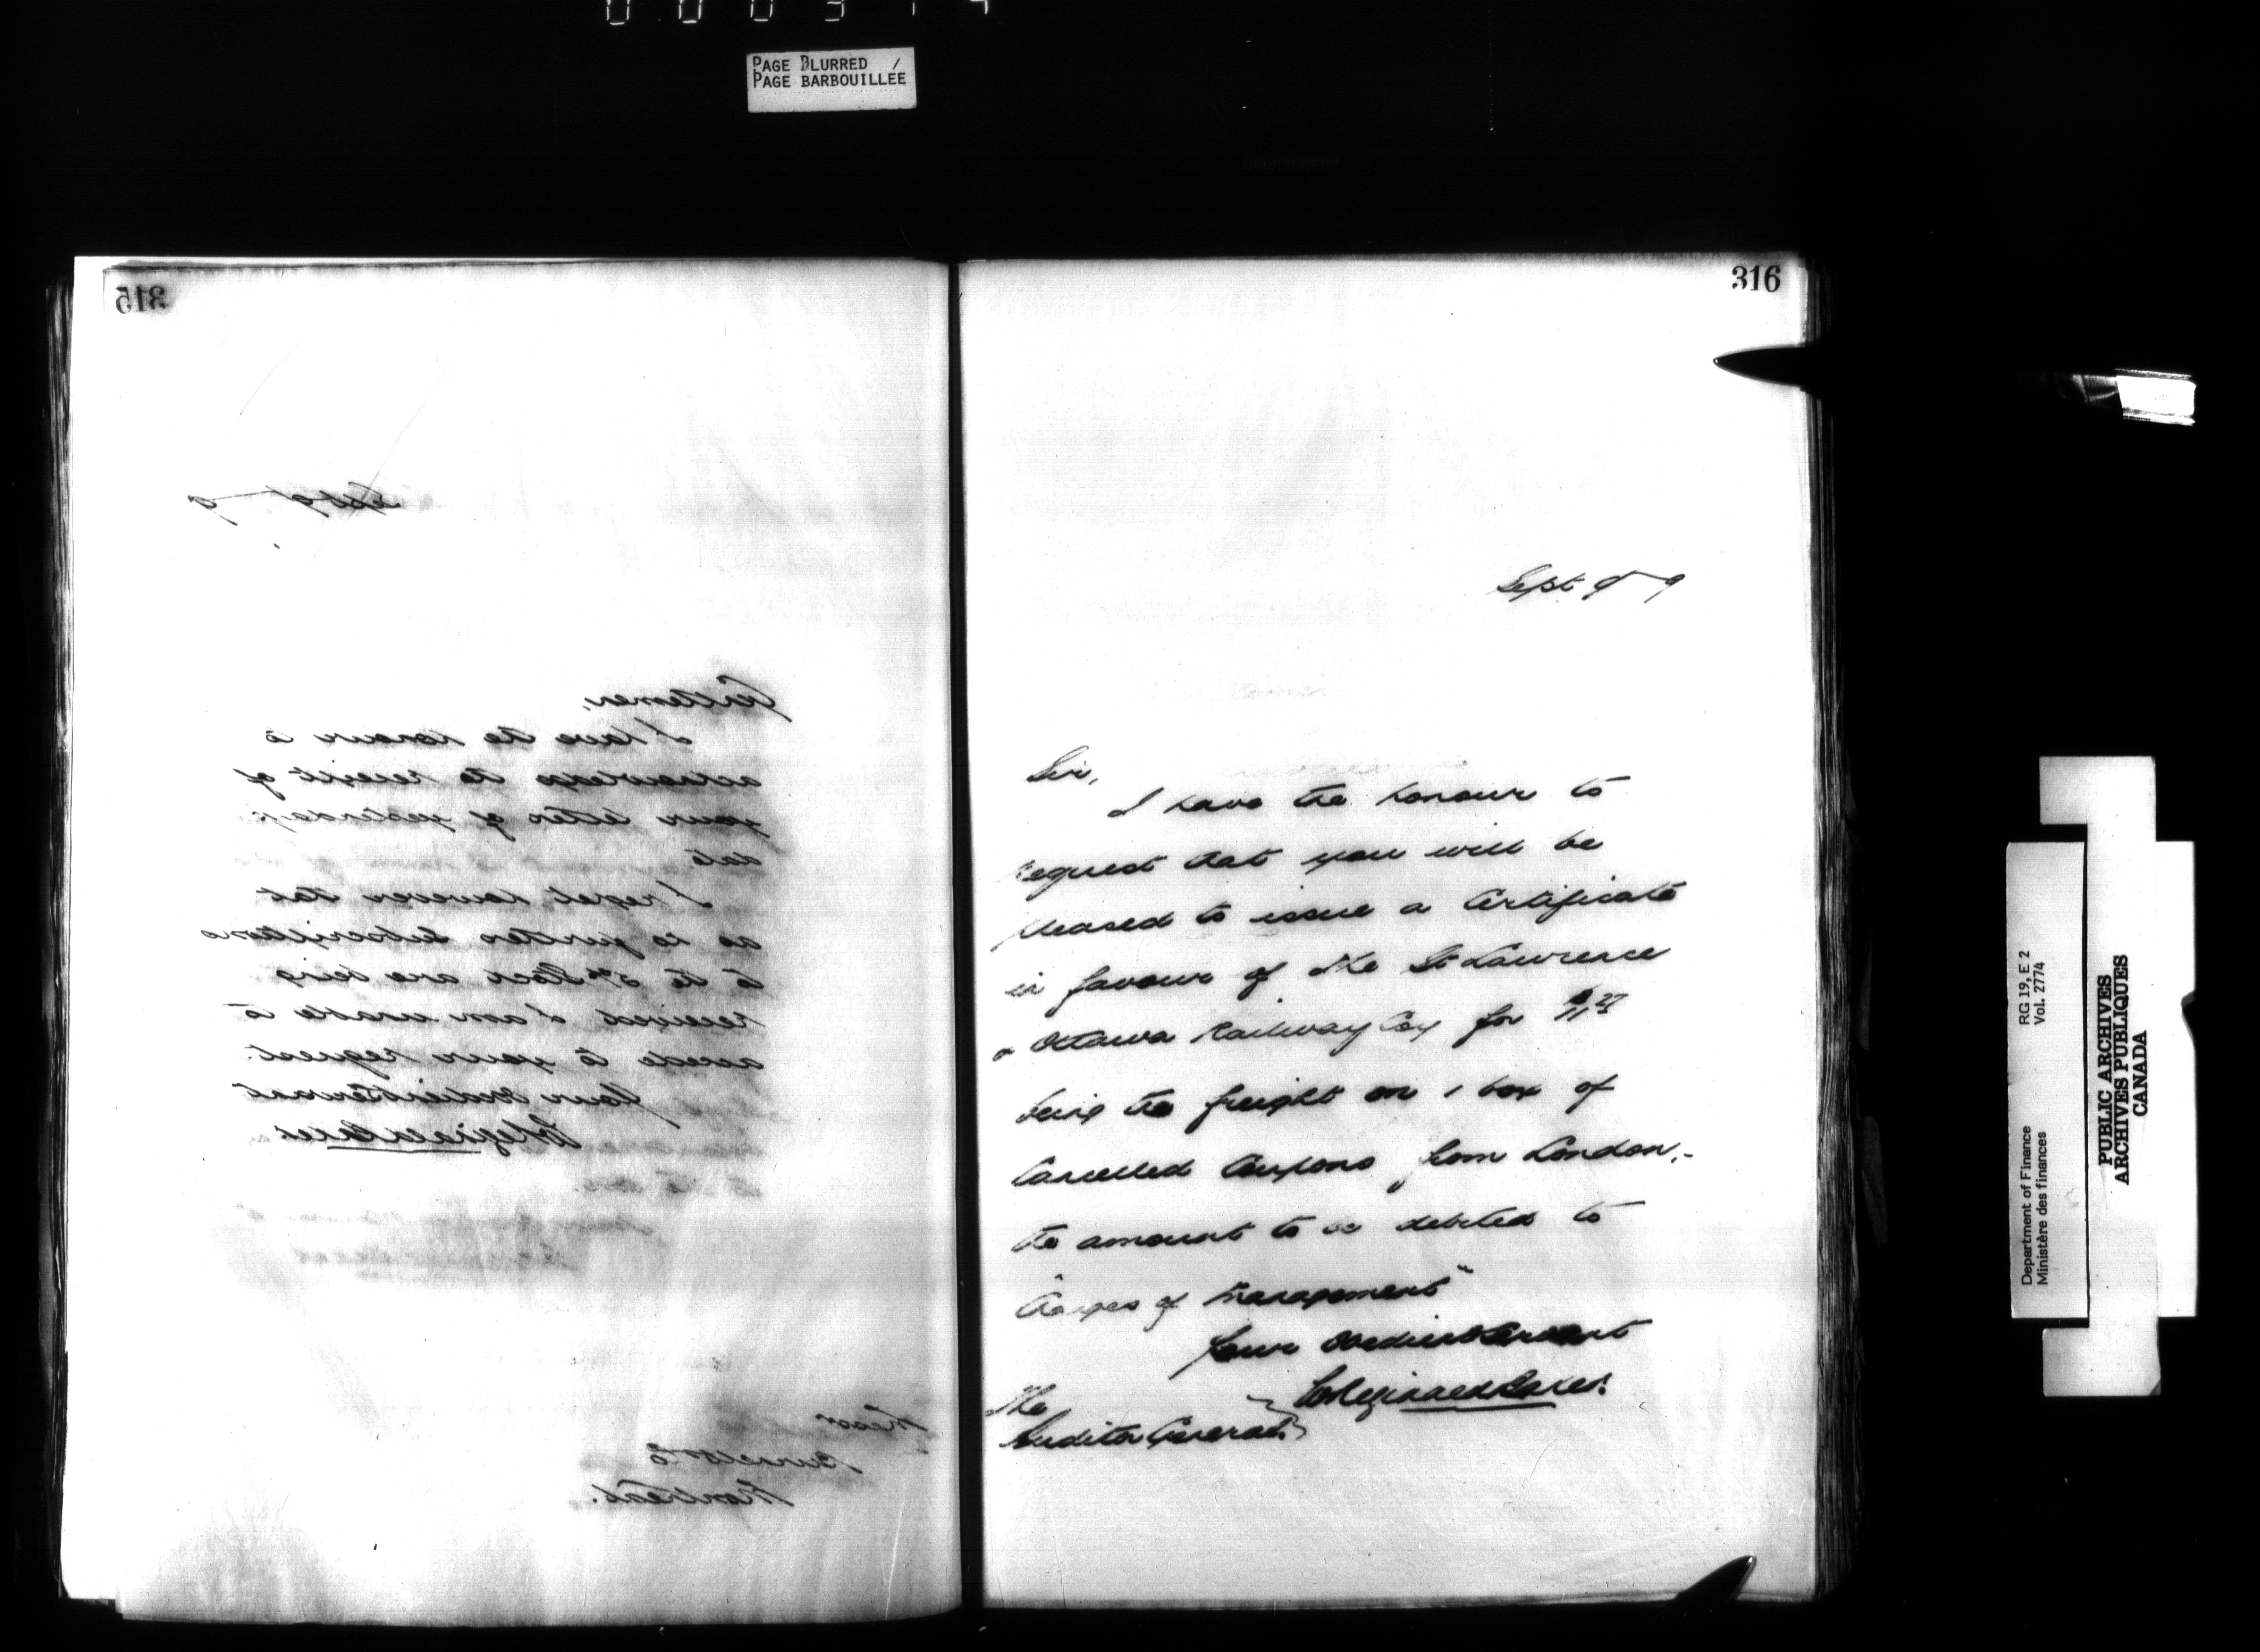 PAGE BLURRED /
PAGE BARBOUILLÉE
315
Sept 9 – 9
Gentlemen,
I have the honour to
acknowledge the receipt of
your letter of yesterday's
date.
I regret however that
as no further subscriptions
to the 5% Stock are being
received I am unable to
accede to your request.
Your Obedient Servant
Montreal.
316
Sept 9 – 9
Sir,
I have the honour to
request that you will be
pleased to issue a Certificate
in favour of the St Lawrence
& Ottawa Railway Coy for
being the freight on 1 box of
Cancelled Coupons from London,-
the amount to be debited to
"Charges of Management"
Your Obedient Servant
The
Auditor General.
Department of Finance RG 19, E 2
Ministère des finances Vol. 2774
PUBLIC ARCHIVES
ARCHIVES PUBLIQUES
CANADA